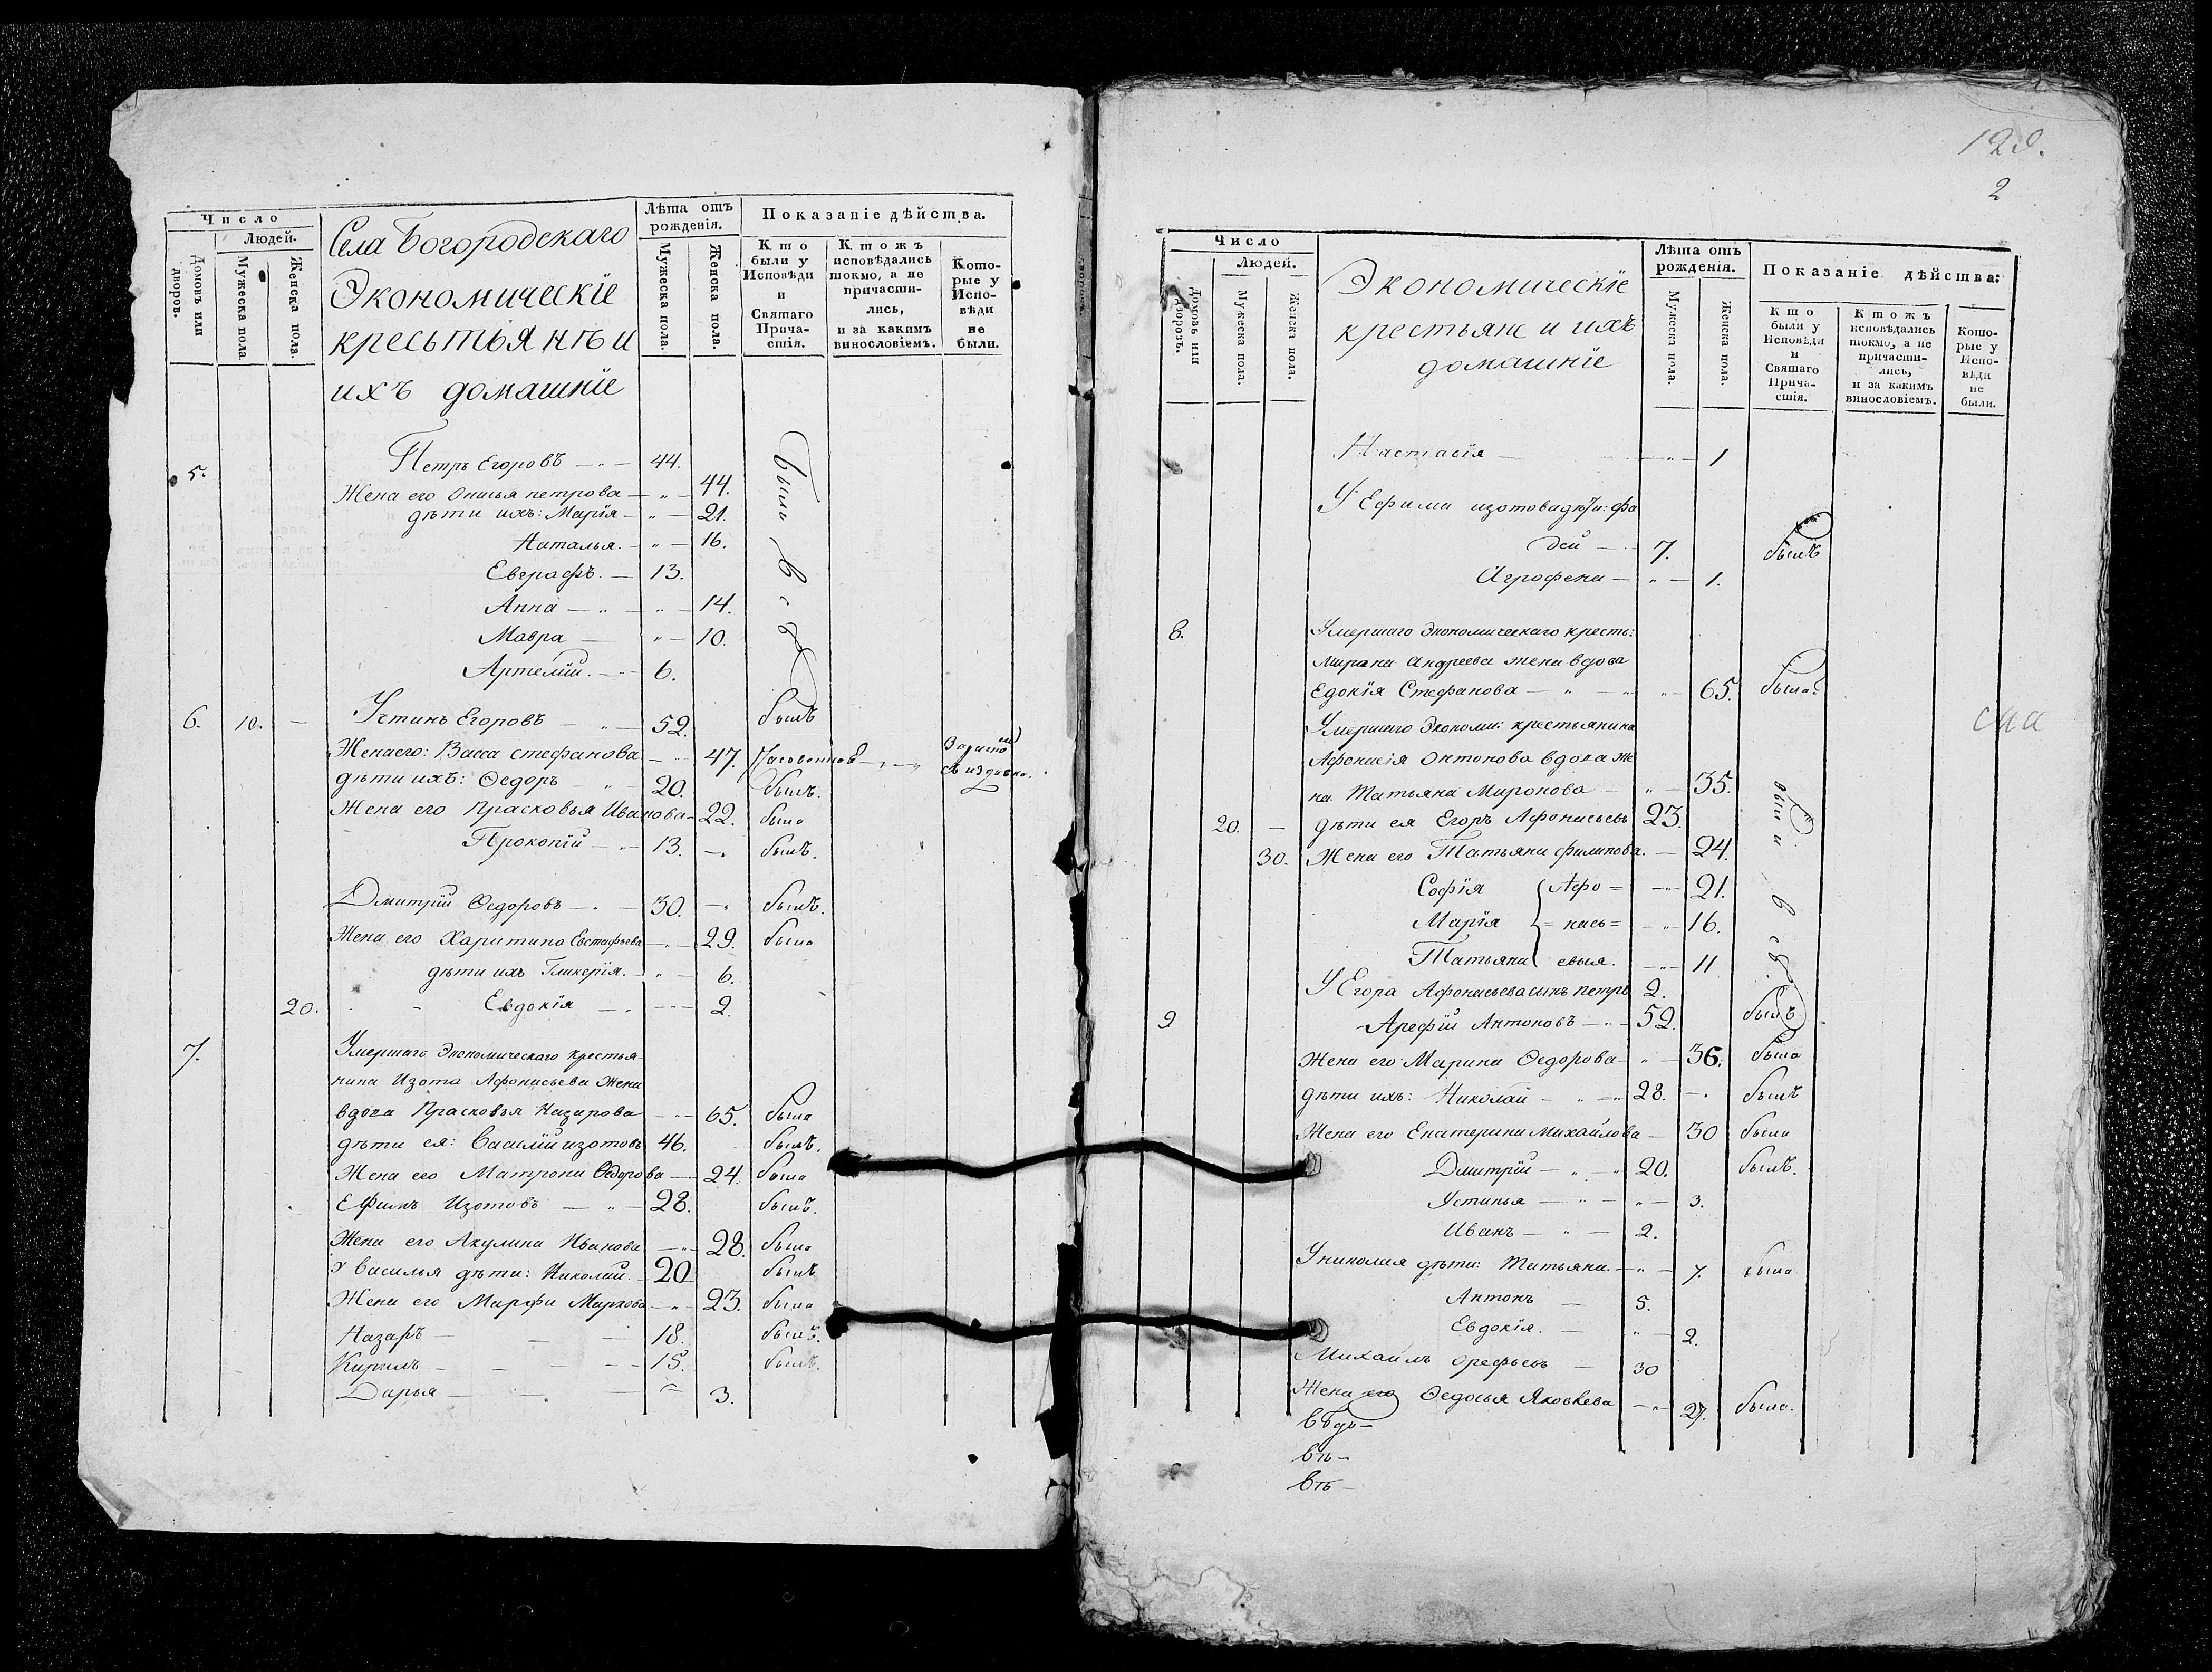 Число
Людей.
Домовъ или дворовъ.
Мужеска пола.
Женска пола.
Села Богородскаго
Экономическіе
кресьтьянъ и
ихъ домашніе
Лѣта отъ рожденія.
Мужеска пола.
Женска пола.
Показаніе дѣйства.
Кто были у Исповѣди и Святаго Причастія.
Ктожъ исповѣдались токмо, а не причастились, и за какимъ винословіемъ.
Которые у Исповѣди не были.
5. Петръ Егоровъ — 44.
Жена его Онисья петрова — 44.
дѣти ихъ: Марія — 21.
Наталья. — 16.
Евграфъ. — 13.
Анна — 14.
Мавра — 10.
Артемій. — 6.
были всѣ
6. 10. — Устинъ Егоровъ — 52. былъ
Жена его: Васса стефанова — 47.
дѣти ихъ: Ѳедоръ — 20. былъ.
Жена его Прасковья Иванова — 22. была
Прокопій — 13. — былъ.
Дмитрій Ѳедоровъ — 30. — былъ.
Жена его Харитина Евстафьева — 29. была
дѣти ихъ Гликерія. — 6.
20. Евдокія — 2.
7. Умершаго Экономическаго крестья
нина Изота Афонасьева Жена
вдова Прасковья Назарова — 65. была
дѣти ея: Василій изотовъ 46. былъ.
Жена его Матрона Ѳедорова — 24. была
Ефимъ Изотовъ — 28. былъ.
Жена его Акулина Иванова — 28. была
У Василья дѣти: Николай. — 20 былъ
Жена его Марфа Маркова — 23. была
Назаръ — 18. былъ.
Кирилъ — 15. былъ.
Дарья — 3.
129.
2
Число
Людей.
Домовъ или дворовъ.
Мужеска пола.
Женска пола.
Экономическіе
крестьяне и ихъ
домашніе
Лѣта отъ рожденія.
Мужеска пола.
Женска пола.
Показаніе дѣйства:
Кто были у Исповѣди и Святаго Причастія.
Ктожъ исповѣдались токмо, а не причастились, и за какимъ винословіемъ.
Которые у Исповѣди не были.
Настасія — 1
У Ефима изотова дѣти: фа
дей — 7. былъ
Агрофена — 1.
8. Умершаго Экономическаго кресть:
Мирона Андреева жена вдова
Едокія Стефанова — 65. была
Умершаго Экономи: крестьянина
Афонасія Онтонова вдова же
на Татьяна Миронова — 35.
20. — дѣти ея Егоръ Афонасьевъ 23.
30. Жена его Татьяна филипова. — 24.
Софія { Афо= — 21.
Марія =нась= — 16.
Татьяна евыя. — 11
были всѣ
У Егора Афонасьева сынъ петръ 2.
9 Арефій Антоновъ — 52. былъ
Жена его Марина Ѳедорова — 36. была
дѣти ихъ: Николай — 28. — былъ
Жена его Екатерина Михайлова — 30 была
Дмитрій — 20. былъ.
Устинья — 3.
Иванъ — 2.
У николая дѣти: Татьяна. — 7. была
Антонъ — 5.
Евдокія. — 2.
Михайлъ Орефьевъ — 30
Жена его Ѳедосья Яковлева — 27. была.